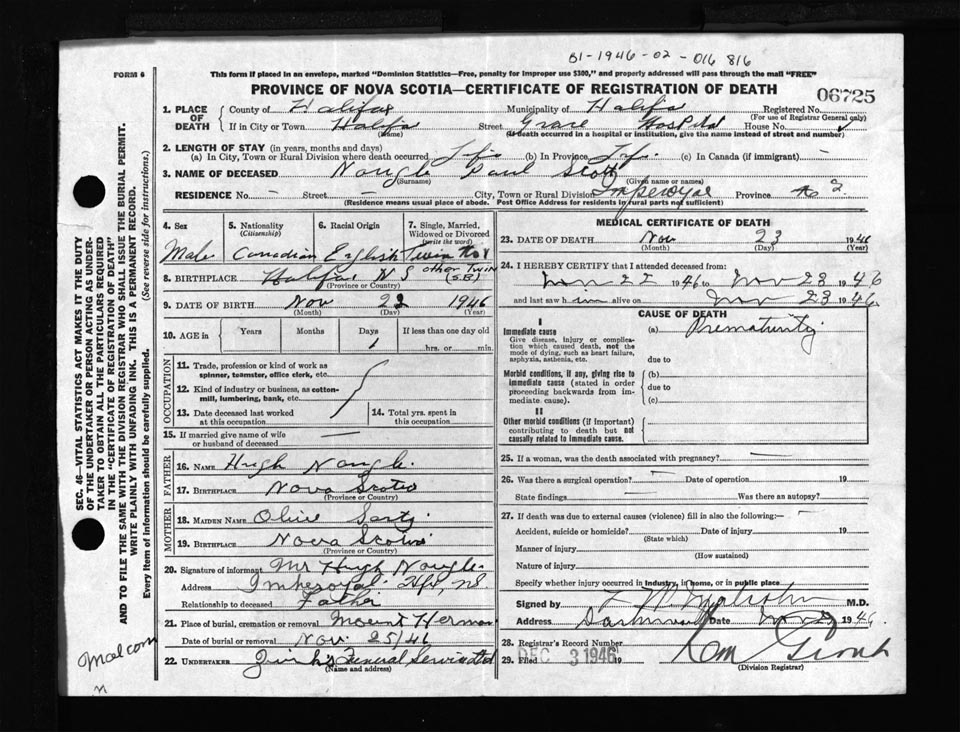 B1-1946-02-016816
FORM 6
This form if placed in an envelope, marked "Dominion Statistics—Free, penalty for improper use $300," and properly addressed will pass through the mail "FREE"
PROVINCE OF NOVA SCOTIA—CERTIFICATE OF REGISTRATION OF DEATH
06725
1. PLACE OF DEATH
County of Halifax Municipality of Halifax Registered No.
(For use of Registrar General only)
If in City or Town Halifax Street Grace Hospital House No.
(Name) (If death occurred in a hospital or institution, give the name instead of street and number)
2. LENGTH OF STAY (in years, months and days)
(a) In City, Town or Rural Division where death occurred (b) In Province (c) In Canada (if immigrant) —
3. NAME OF DECEASED Naugle Paul Scott
(Surname) (Given name or names)
RESIDENCE No. — Street — City, Town or Rural Division Imperoyal Province
(Residence means usual place of abode. Post Office Address for residents in rural parts not sufficient)
4. Sex
Male
5. Nationality
(Citizenship)
Canadian
6. Racial Origin
English
7. Single, Married, Widowed or Divorced
(write the word)
Twin No 1
other Twin
(S.B.)
8. BIRTHPLACE Halifax N S
(Province or Country)
9. DATE OF BIRTH Nov 22 1946
(Month) (Day) (Year)
10. AGE in
Years Months Days If less than one day old
1 hrs. or min.
OCCUPATION
11. Trade, profession or kind of work as spinner, teamster, office clerk, etc.
12. Kind of industry or business, as cotton-mill, lumbering, bank, etc.
13. Date deceased last worked at this occupation
14. Total yrs. spent in this occupation
15. If married give name of wife or husband of deceased —
FATHER
16. NAME Hugh Naugle
17. BIRTHPLACE Nova Scotia
(Province or Country)
MOTHER
18. MAIDEN NAME Olive
19. BIRTHPLACE Nova Scotia
(Province or Country)
20. Signature of informant Mr Hugh Naugle
Address Imperoyal Hfx, NS
Relationship to deceased Father
21. Place of burial, cremation or removal Mount Hermon
Date of burial or removal Nov 25/46
22. UNDERTAKER Funeral Service Ltd
(Name and address)
MEDICAL CERTIFICATE OF DEATH
23. DATE OF DEATH Nov 23 1946
(Month) (Day) (Year)
24. I HEREBY CERTIFY that I attended deceased from:
Nov 22 1946 to Nov 23 1946
and last saw him alive on Nov 23 1946
CAUSE OF DEATH
I
Immediate cause
Give disease, injury or complication which caused death, not the mode of dying, such as heart failure, asphyxia, asthenia, etc.
(a) Prematurity
due to
Morbid conditions, if any, giving rise to immediate cause (stated in order proceeding backwards from immediate cause).
(b)
due to
(c)
II
Other morbid conditions (if important) contributing to death but not causally related to immediate cause.
25. If a woman, was the death associated with pregnancy? —
26. Was there a surgical operation? — Date of operation 19
State findings — Was there an autopsy?
27. If death was due to external causes (violence) fill in also the following: —
Accident, suicide or homicide? Date of injury 19
(State which)
Manner of injury
(How sustained)
Nature of injury
Specify whether injury occurred in industry, in home, or in public place
Signed by M.D.
Address Dartmouth Date Nov 23 1946
28. Registrar's Record Number
29. Filed DEC 3 1946 19
(Division Registrar)
SEC. 46—VITAL STATISTICS ACT MAKES IT THE DUTY OF THE UNDERTAKER OR PERSON ACTING AS UNDERTAKER TO OBTAIN ALL THE PARTICULARS REQUIRED IN THE "CERTIFICATE OF REGISTRATION OF DEATH" AND TO FILE THE SAME WITH THE DIVISION REGISTRAR WHO SHALL ISSUE THE BURIAL PERMIT.
WRITE PLAINLY WITH UNFADING INK. THIS IS A PERMANENT RECORD.
Every item of information should be carefully supplied. (See reverse side for instructions.)
Malcom